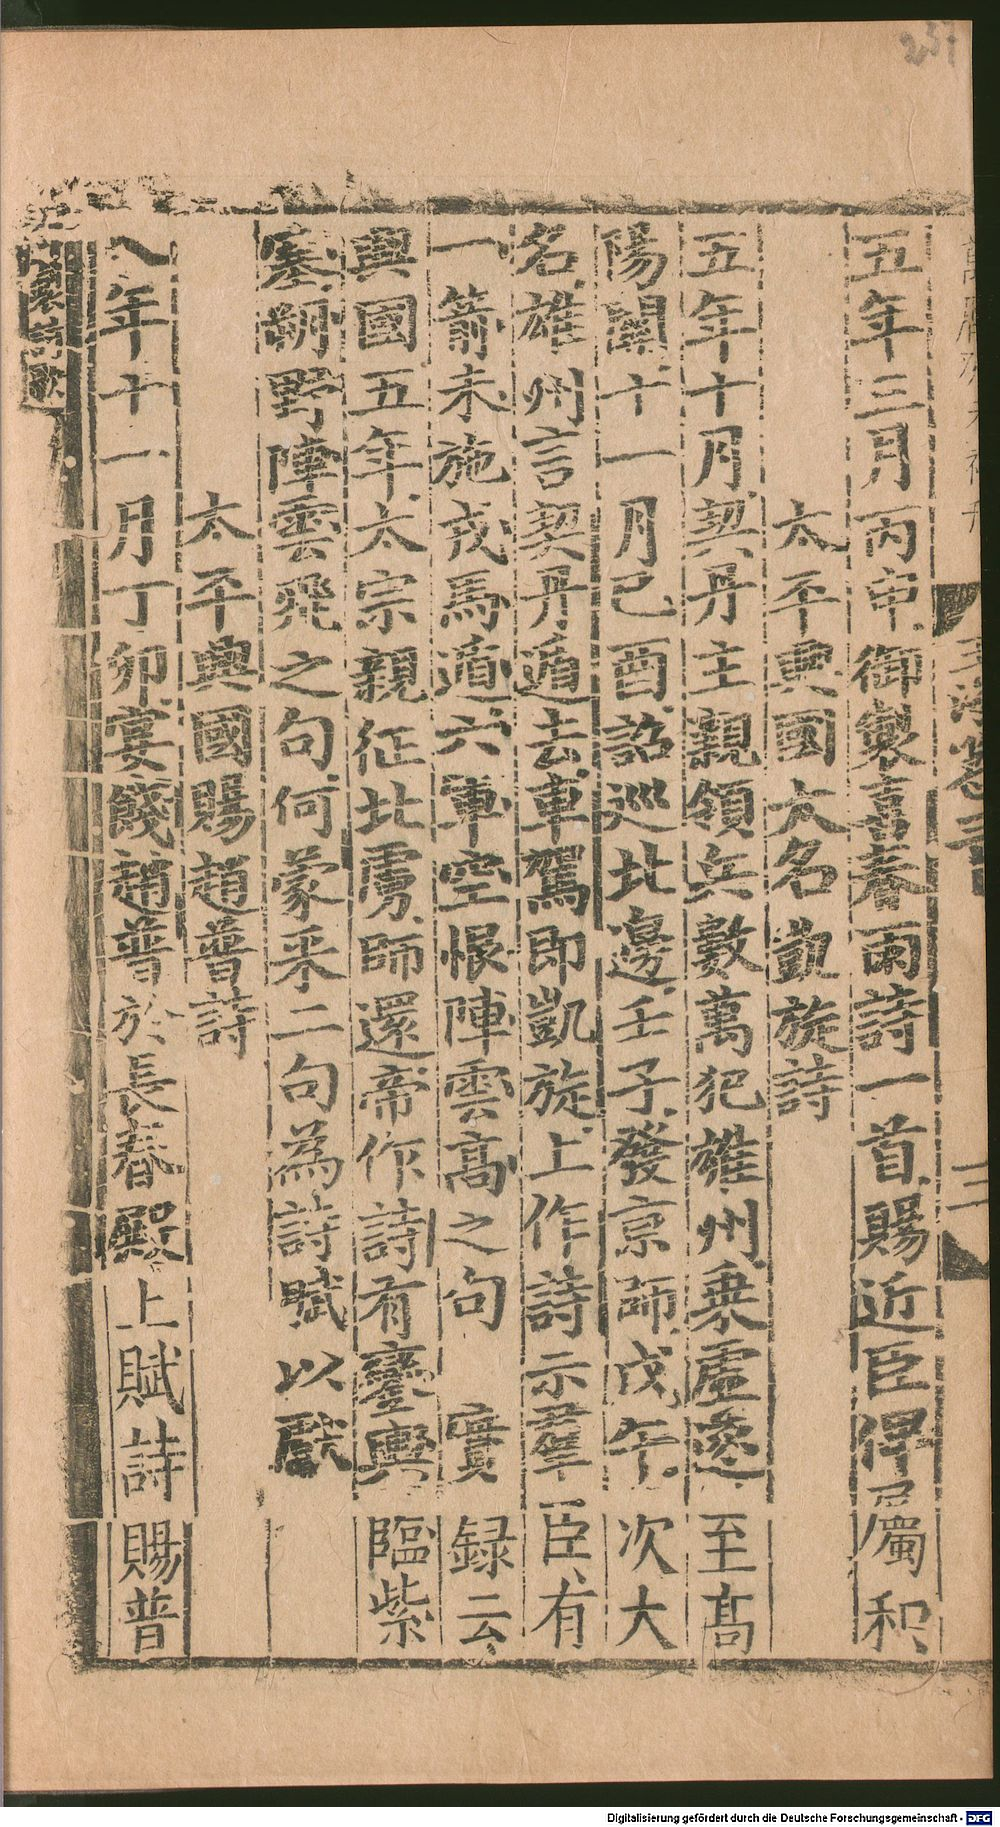 五年三月丙申御製喜春雨詩一首賜近臣俾屬和
太平興國大名凱旋詩
五年十月契丹主親領兵數萬犯雄州乘虛遂至高
陽關十一月己酉詔巡北邊壬子發京師戊午次大
名雄州言契丹遁去車駕即凱旋上作詩示羣臣有
一箭未施戎馬遁六軍空恨陣雲高之句 實録云
興國五年太宗親征北虜師還帝作詩有鑾輿臨紫
塞朔野陣雲飛之句何蒙采二句為詩賦以獻
太平興國賜趙普詩
八年十一月丁卯宴餞趙普於長春殿上賦詩賜普
Digitalisierung gefördert durch die Deutsche Forschungsgemeinschaft - DFG